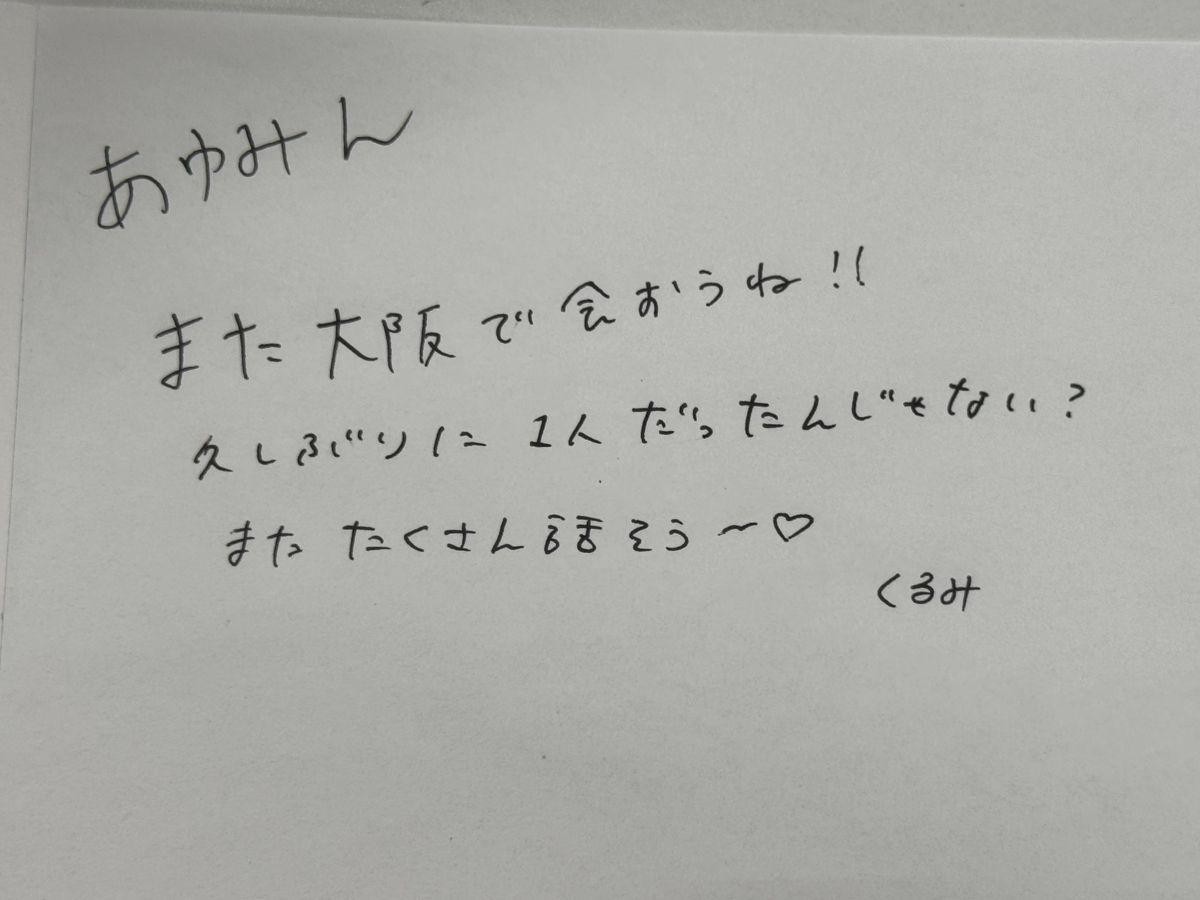 あゆみん
また大阪で会おうね!!
久しぶりに1人だったんじゃない?
またたくさん話そう〜♡
くるみ